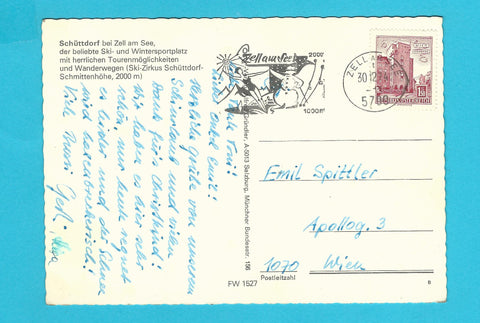 Schüttdorf bei Zell am See,
der beliebte Ski- und Wintersportplatz
mit herrlichen Tourenmöglichkeiten
und Wanderwegen (Ski-Zirkus Schüttdorf-
Schmittenhöhe, 2000 m)
Zell am See
2000
1000m
ZELL AM SEE
30.12.
5700
REPUBLIK ÖSTERREICH
Herzliche Grüße von unserem
Schiurlaub und vielen
Dank für's Christkind!
Wir haben es hier sehr
schön, nur heute regnet
es leider und der Schnee
wird
Viele Bussi
Gründler, A-5013 Salzburg, Münchner Bundesstr. 156
FW 1527
Emil Spittler
Apollog. 3
1070 Wien
Postleitzahl
B